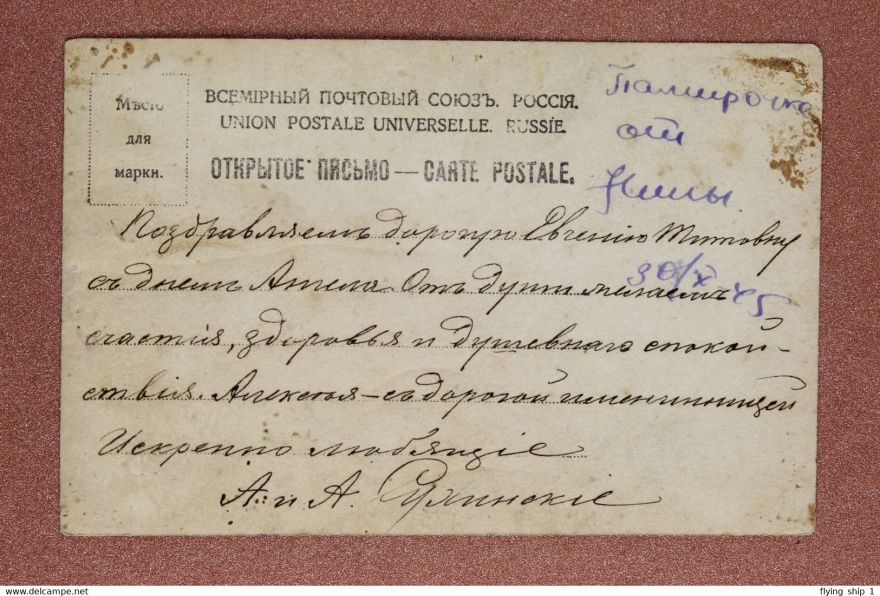 Мѣсто
для
марки.
ВСЕМІРНЫЙ ПОЧТОВЫЙ СОЮЗЪ. РОССІЯ.
UNION POSTALE UNIVERSELLE. RUSSIE.
ОТКРЫТОЕ ПИСЬМО — CARTE POSTALE.
от
Нины.
30/X-45
Поздравляемъ дорогую Евгенію Титовну
съ днемъ Ангела. Отъ души желаемъ
счастія, здоровья и душевнаго спокой-
ствія. Алексѣя – съ дорогой именинницей
Искренно любящіе
А. и А.
www.delcampe.net
flying ship 1